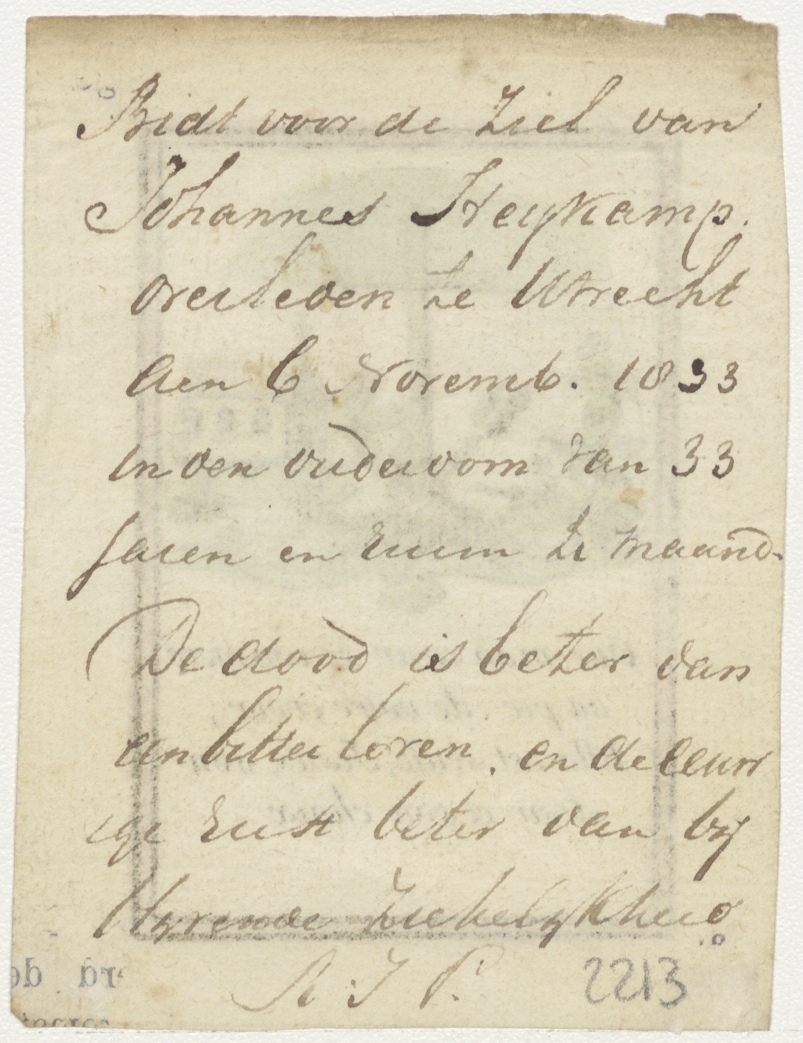 Bidt voor de Ziel van
Johannes Heykamp.
overleden te Utrecht
den 6 Novemb. 1833
in den ouderdom van 33
Jaren en ruim 2 maand.
De dood is beter dan
een bitter leven. en de eeuw
ige rust beter dan bij
blyvende Ziekelykheid
R. I. P.
2213